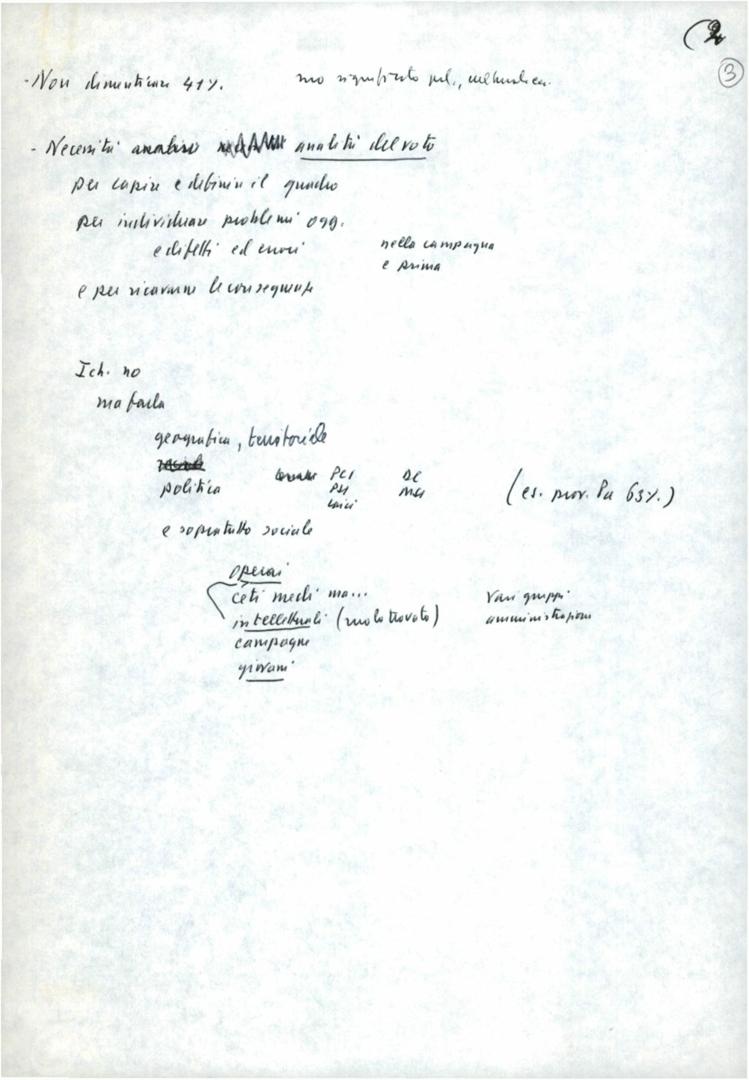 2
3
- Non dimenticare 41%. suo significato pol.,
- Necessità analisi analisi del voto
per capire e definire il quadro
per individuare problemi ogg.
e difetti ed errori nella campagna
e prima
e per ricavarne le conseguenze
Ich. no
ma farla
geografica, territoriale
sociale
politica PCI DC
PSI MSI
laici
(es. prov. Pa 63%.)
e sopratutto sociale
operai
ceti medi ma... vari gruppi
intellettuali (ruolo trovato) amministrazioni
campagne
giovani